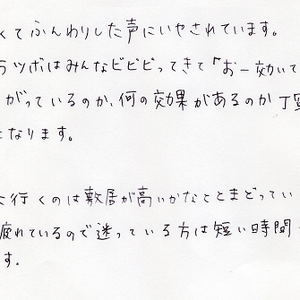 くてふんわりした声にいやされています。
ラツボはみんなビビビってきて「おー効いて
がっているのか、何の効果があるのか丁寧
になります。
に行くのは敷居が高いかなとまどってい
疲れているので迷っている方は短い時間
す。